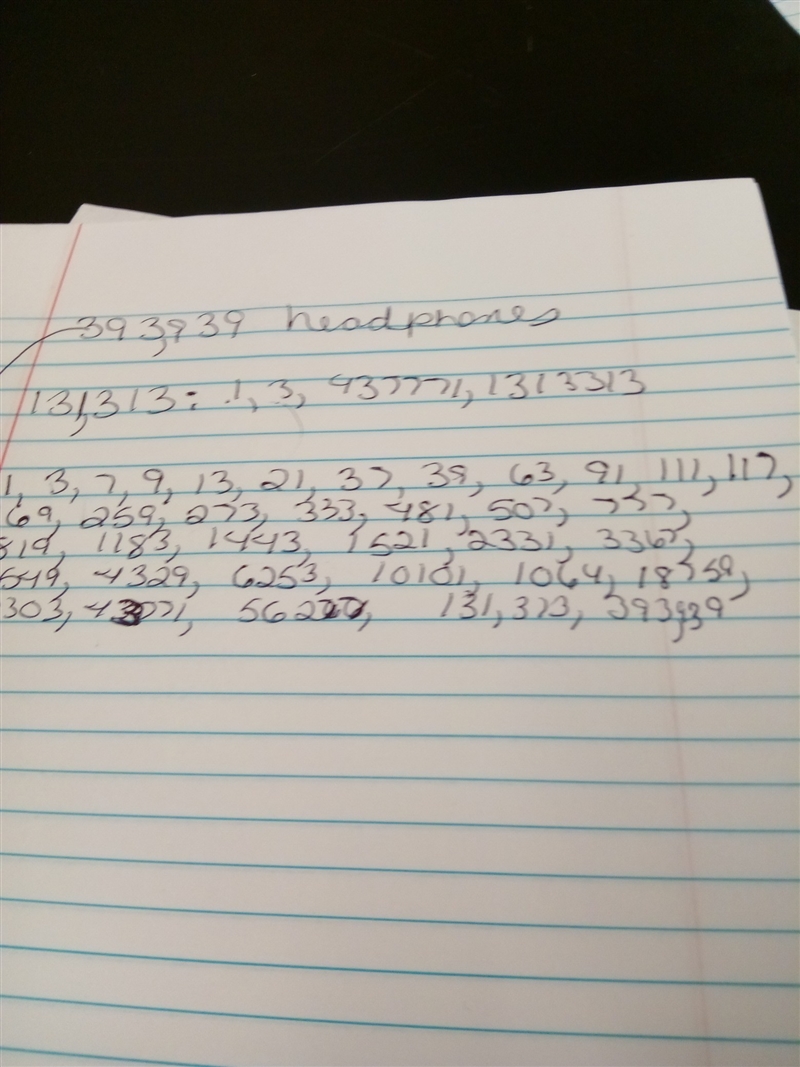 393,939 headphones
131,313: 1, 3, 437771, 1313313
1, 3, 7, 9, 13, 21, 37, 39, 63, 91, 111, 117,
69, 259, 273, 333, 481, 507, 777,
819, 1183, 1443, 1521, 2331, 3367,
549, 4329, 6253, 10101, 1064, 18759,
303, 56277, 131,373, 393,939